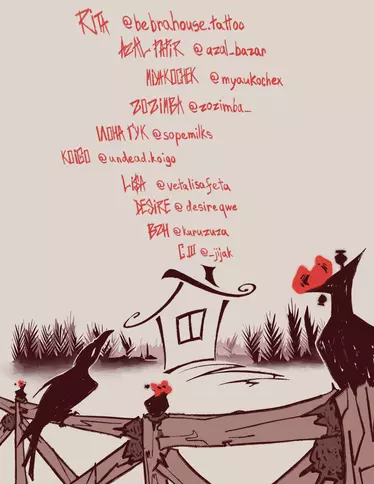 RITA @bebrahouse.tattoo
AZAL PATIR @azal_bazar
MIYAKOCHEK @myaukochex
ZOZIMBA @zozimba_
ИОНА ГУК @sopemilks
KOIGO @undead.koigo
LISA @vetalisafeta
DESIRE @desireqwe
BZH @kuruzuza
С Ш @_jjak